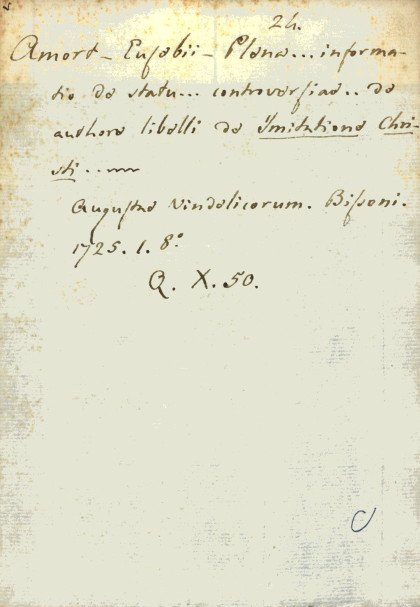 24.
Amort - Eusebii - Plena... informa-
tio de statu... controversiae.. de
authore libelli de Imitatione Chri-
sti...
Augustae Vindelicorum. Bissoni.
1725. 1. 8.º
Q. X. 50.